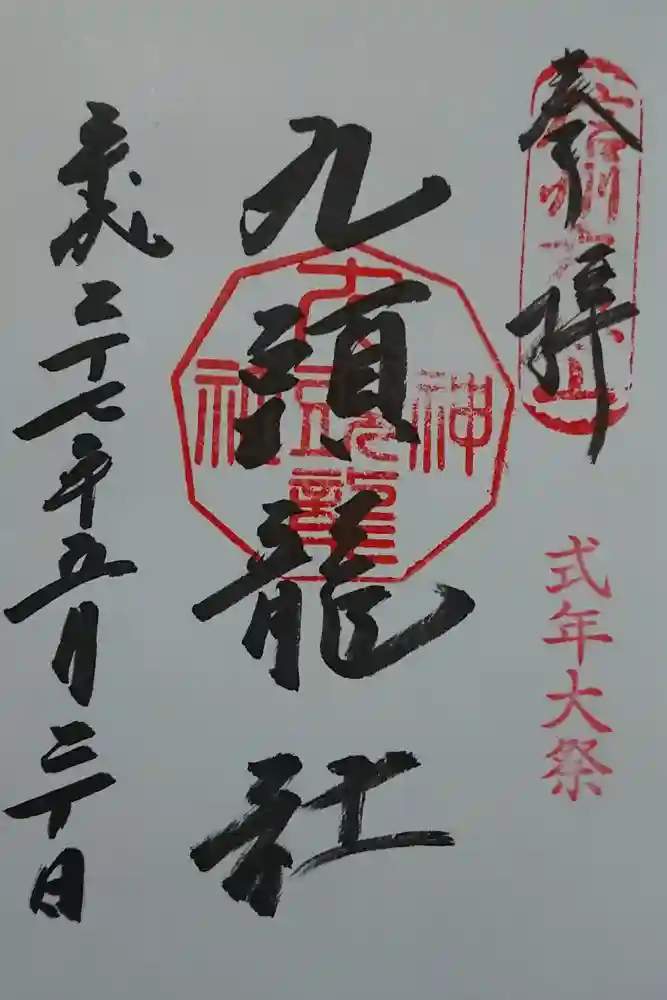 奉拝
信州戸隠山
式年大祭
九頭龍社
九頭龍神社
平成二十七年五月二十日